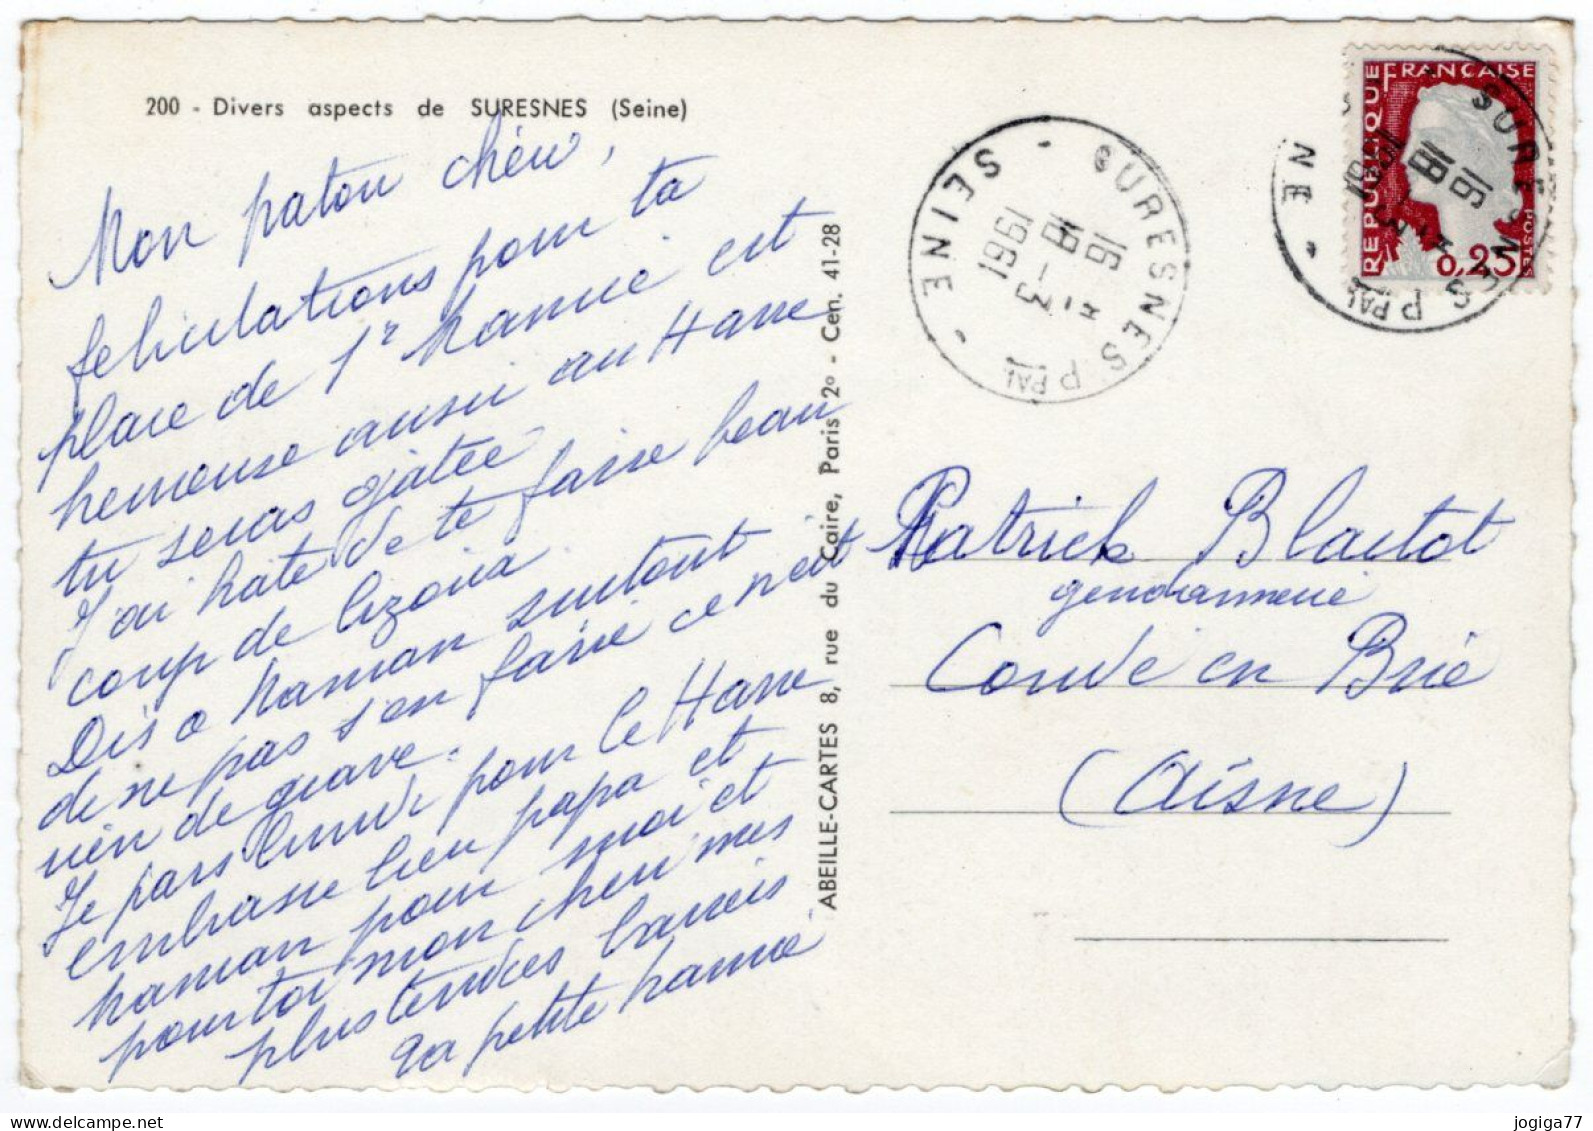 200 - Divers aspects de SURESNES (Seine)
Mon paton chéri,
felicitations pour ta
place de 1r Mamie est
heureuse aussi au Havre
tu seras gatée
J'ai hate de te faire beau
coup de
Dis a Maman surtout
de ne pas s'en faire ce n'est
rien de grave.
Je pars lundi pour le Havre
embrasse bien papa et
Maman pour moi et
pour toi mon cheri mes
plus tendres baisers
Ta petite Mamie
ABEILLE-CARTES 8, rue du Caire, Paris 2º - Cen. 41-28
SURESNES PPAL
- SEINE -
16 H
18 - 3
1961
RÉPUBLIQUE FRANÇAISE
POSTES
0,25
SURESNES PPAL
NE -
16 H
18 - 3
1961
Patrick Blautot
gendarmerie
Condé en Brie
(Aisne)
jogiga77